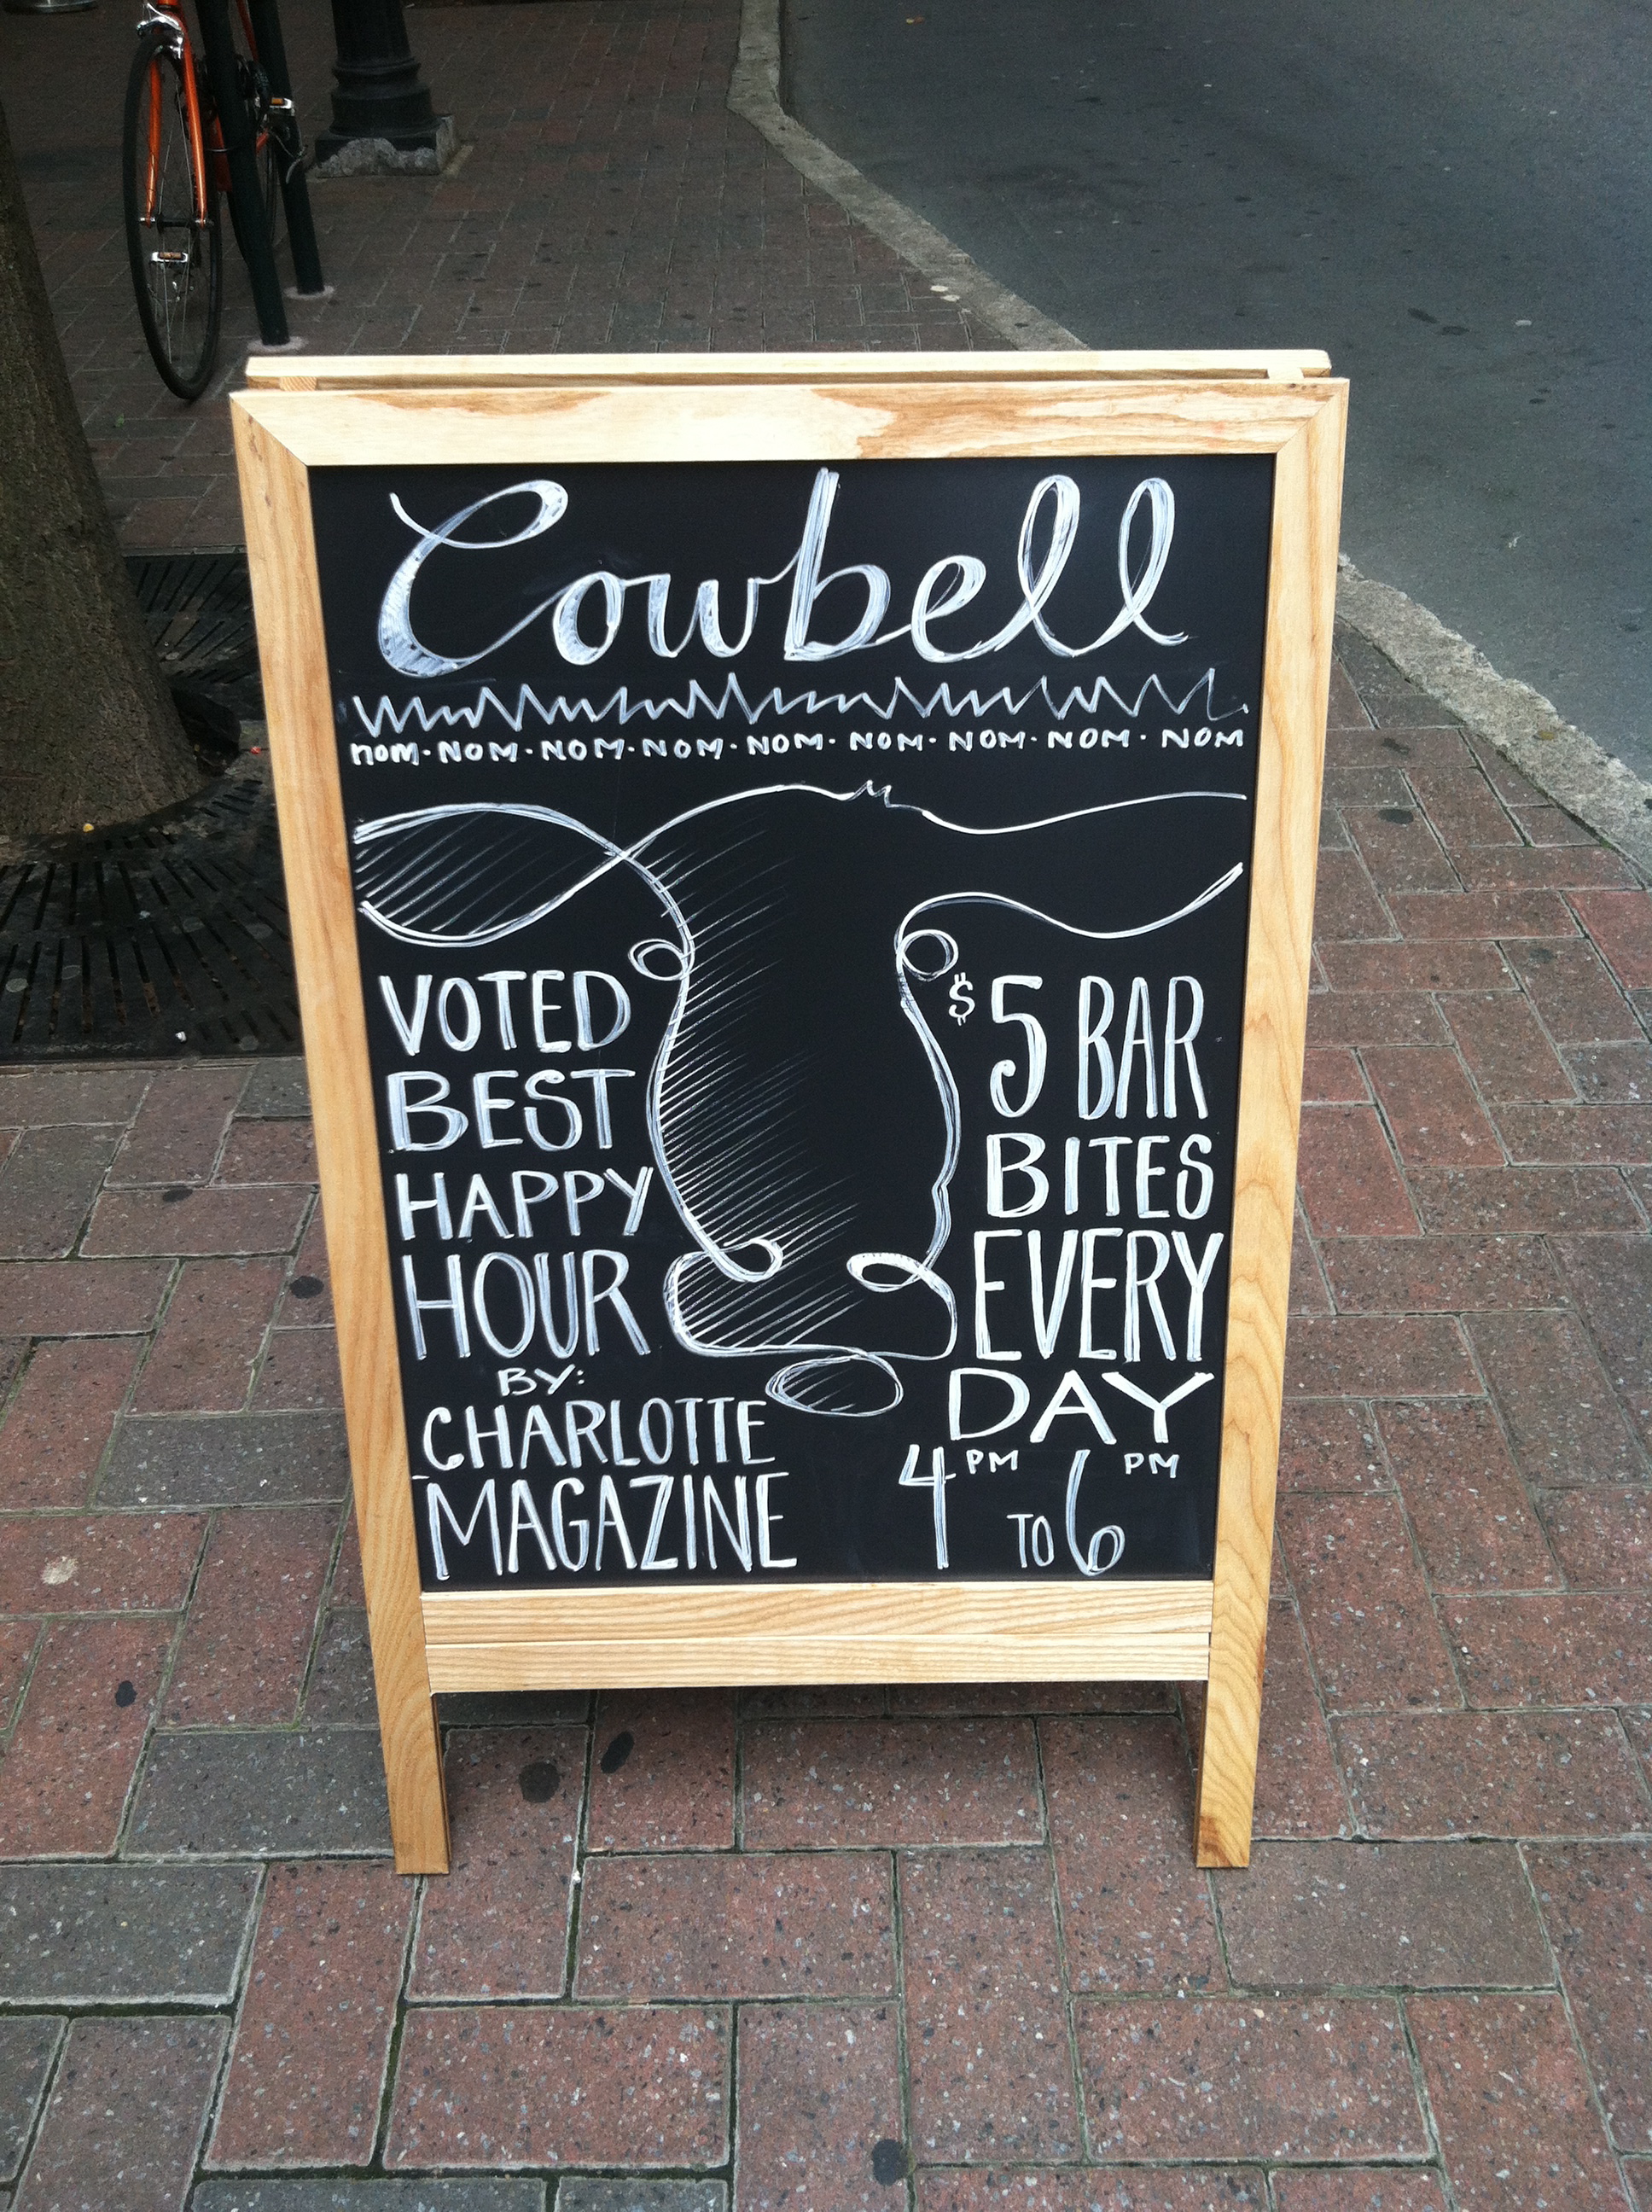 Cowbell
nom · NOM · NOM · NOM · NOM · NOM · NOM · NOM · NOM
VOTED
BEST
HAPPY
HOUR
BY:
CHARLOTTE
MAGAZINE
$5 BAR
BITES
EVERY
DAY
4PM TO 6PM